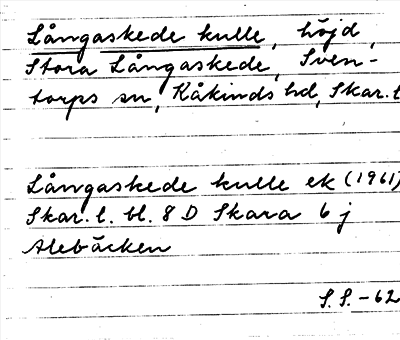 Långaskede kulle, höjd,
Stora Långaskede, Sven-
torps sn, Kåkinds hd, Skar. l
Långaskede kulle ek (1961)
Skar. l. bl. 8 D Skara 6 j
Alebäcken
S. S. - 62